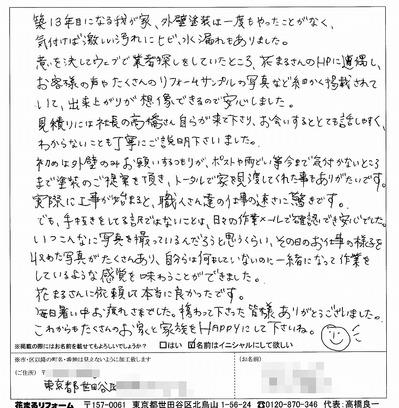 築13年目になる我が家、外壁塗装は一度もやったことがなく、
気付けば激しい汚れにヒビ、水漏れもありました。
意を決してウェブで業者探しをしていたところ、花まるさんのHPに遭遇し、
お客様の声やたくさんのリフォームサンプルの写真など細かく掲載されて
いて、出来上がりが想像できるので安心しました。
見積りには社長の高橋さん自らが来て下さり、お会いするととても話しやすく、
わからないことも丁寧にご説明下さいました。
初めは外壁のみお願いするつもりが、ポストや雨どい等今まで気付かないところ
まで塗装のご提案を頂き、トータルで家を見渡してくれた事もありがたいです。
実際に工事が始まると、職人さん達の仕事の速さに驚きです。
でも、手抜きをしてる訳ではないことは、日々の作業メールで確認でき安心でした。
いつこんなに写真を撮っているんだろうと思うくらい、その日のお仕事の様子を
収めた写真がたくさんあり、自分らは何もしていないのに一緒になって作業を
しているような感覚を味わうことができました。
花まるさんに依頼して本当に良かったです。
毎日暑い中お疲れさまでした。携わって下さった皆様ありがとうございました。
これからもたくさんのお家と家族をHAPPYにして下さいね。
※掲載の際にはお名前を載せてもよろしいでしょうか? □はい ☑名前はイニシャルにして欲しい
※市・区以降の町名・番地は見立たないように加工致します
(ご住所) 〒
(お名前)
東京都世田谷区
花まるリフォーム 〒157-0061 東京都世田谷区北烏山1-56-24 ☎0120-870-346 代表:高橋良一